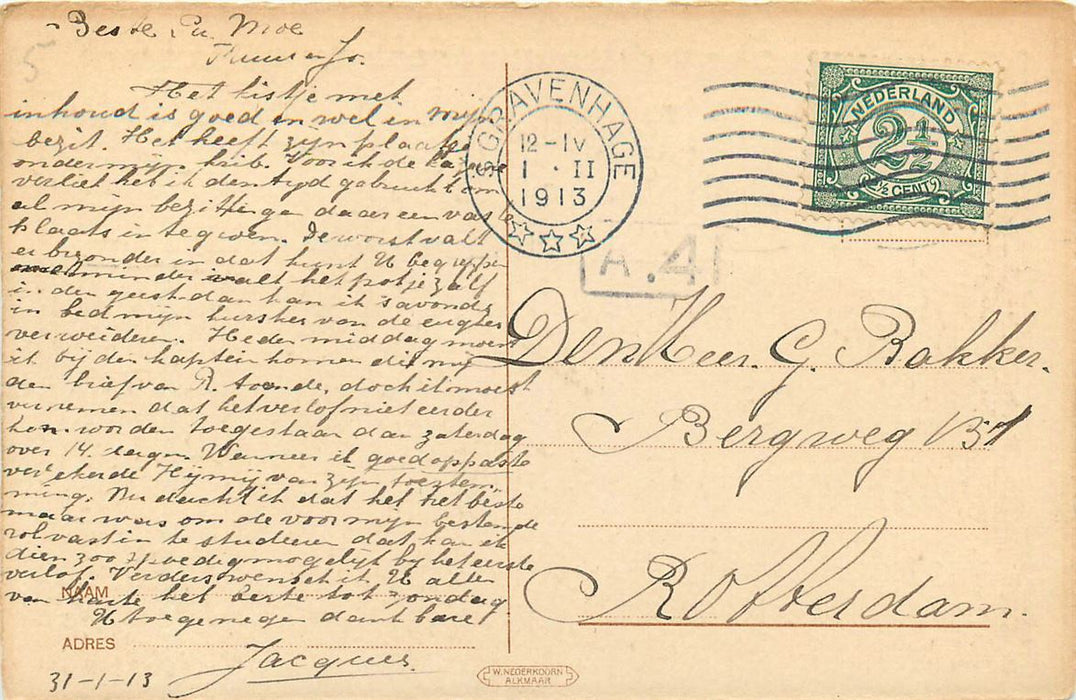 Beste Pa, Moe
Truus en Jo.
Het kistje met
inhoud is goed en wel in mijn
bezit. Het heeft zijn plaats
onder mijn krib. Voor ik de
verliet heb ik den tijd gebruikt om
al mijn bezittingen daar een vaste
plaats in te geven. De worst valt
er bijzonder in dat kunt U begrijpen
niet minder valt het potje zalf
in den geest dan kan ik 's avonds
in bed mijn
verwijderen. Heden middag moest
ik bij den kaptein komen die mij
den brief van P. toonde, doch ik moest
vernemen dat het verlof niet eerder
kon worden toegestaan dan Zaterdag
over 14 dagen. Wanneer ik goed oppaste
verzekerde Hij mij van zijn toestem-
ming. Nu dacht ik dat het het beste
maar was om de voor mijn bestemde
rol vast in te studeeren dat kan ik
dien zoo spoedig mogelijk bij het eerste
verlof. Verders wensch ik U allen
van harte het beste tot Zondag
U toegenegen dankbare
Jacques
31-1-13
NAAM
ADRES
W. NEDERKOORN
ALKMAAR
5
'S GRAVENHAGE
12-IV
1 · II
1913
NEDERLAND
2½
2½ CENT
A.4
Den Heer G. Bakker.
Bergweg 131
Rotterdam.